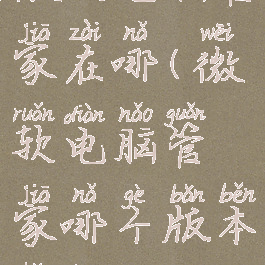 jiā zài nǎ wēi
家在哪(微
ruǎn diàn nǎo guǎn
软电脑管
jiā nǎ gè bǎn běn
家哪个版本